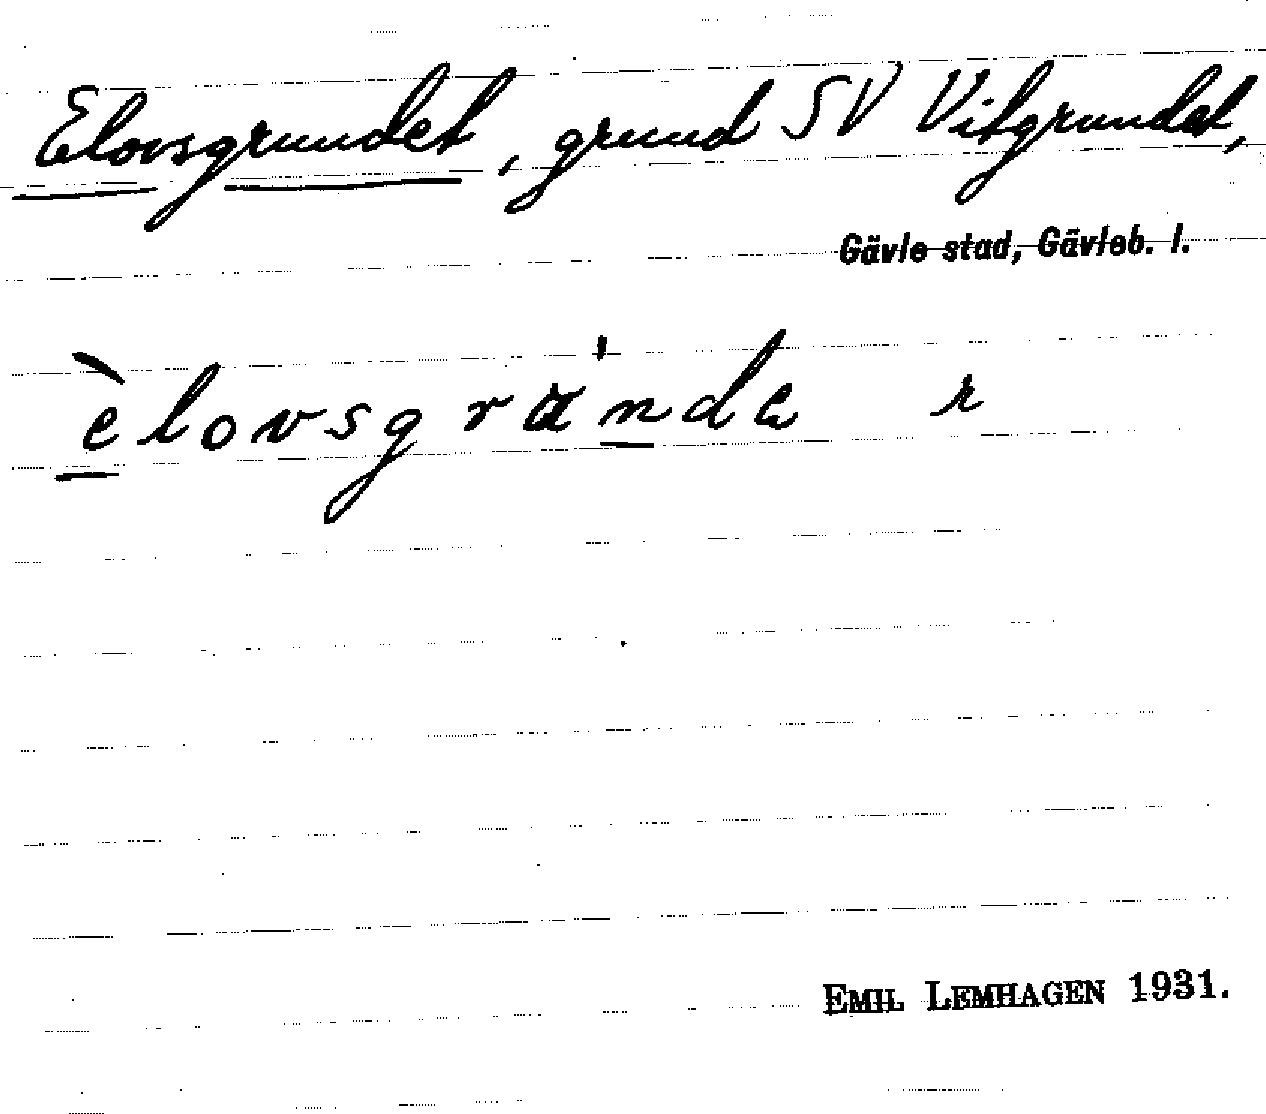 Elovsgrundet, grund SV Vitgrundet,
Gävle stad, Gävleb. l.
èlovsgrunde r
EMIL LEMHAGEN 1931.